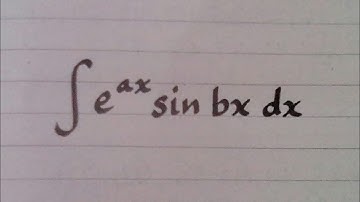 ∫e^{ax} sin bx dx